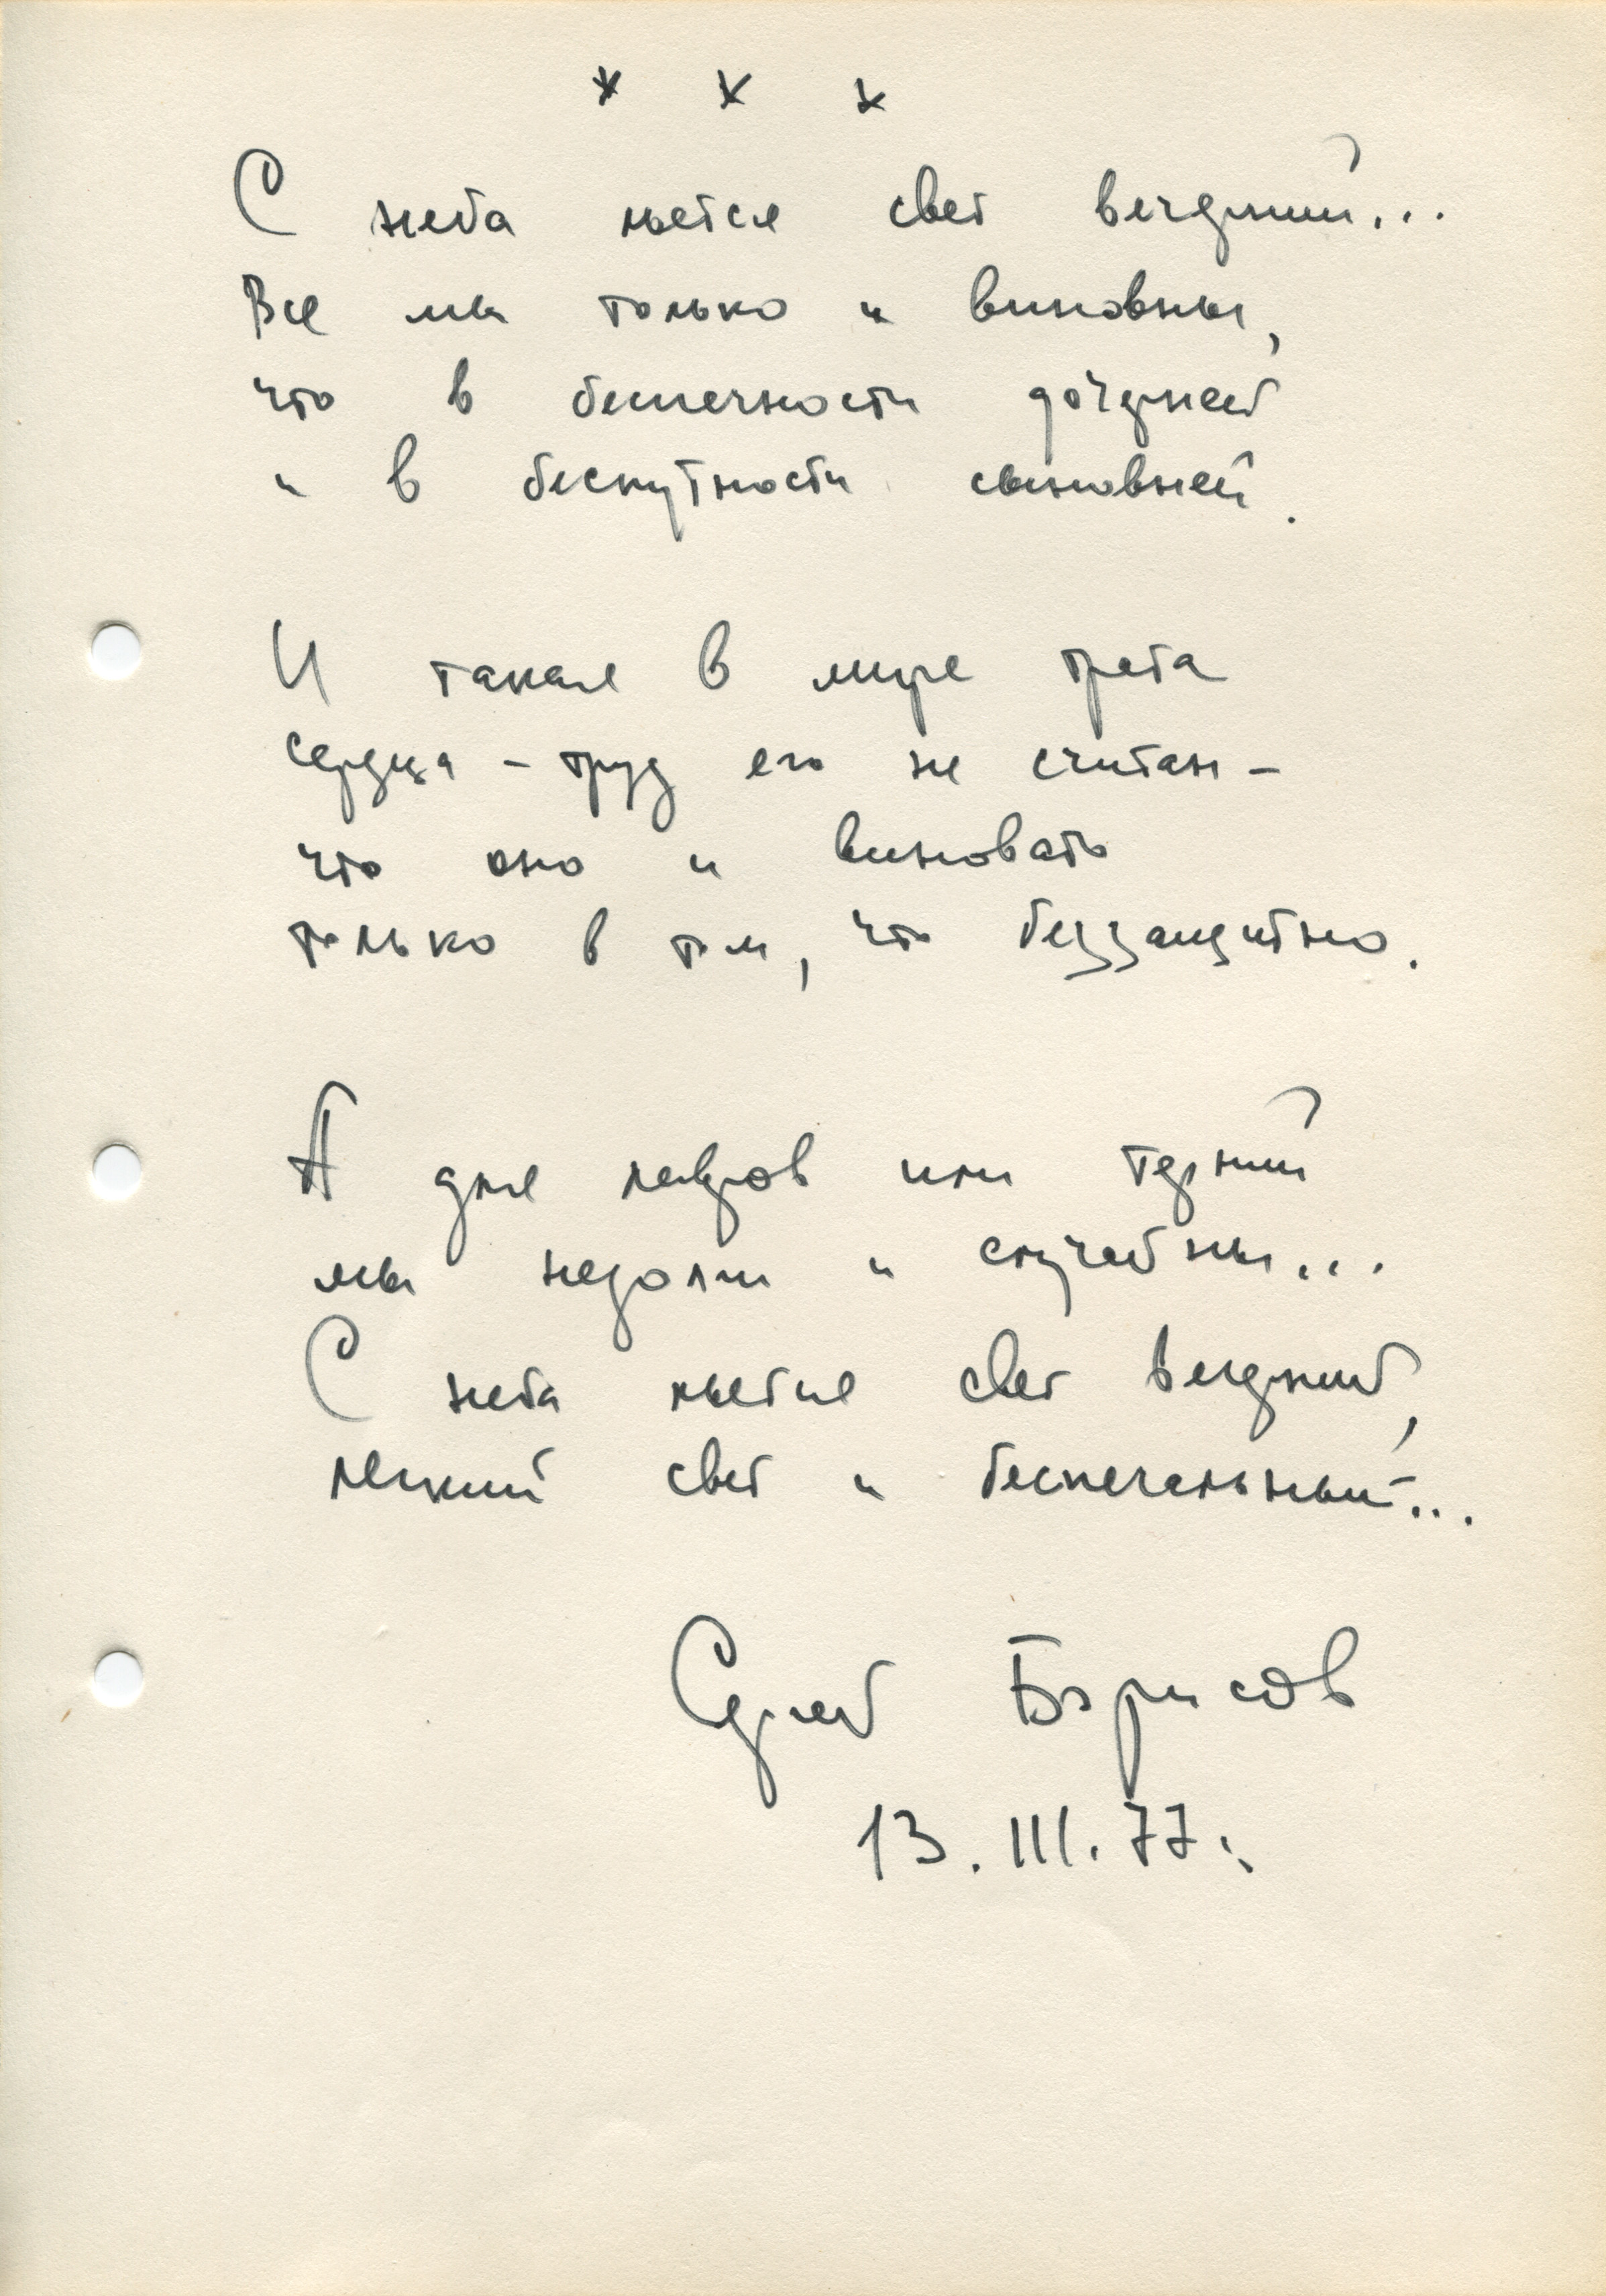 * * *
С неба льётся свет вечерний...
Все мы только и виновны,
что в беспечности дочерней
и в беспутности сыновней.
И такая в мире трата
сердца – труд его не считан –
что оно и виновато
только в том, что беззащитно.
А для лавров или терний
мы недолги и случайны...
С неба льётся свет вечерний,
легкий свет и беспечальный...
Сергей Борисов
13.III.77г.